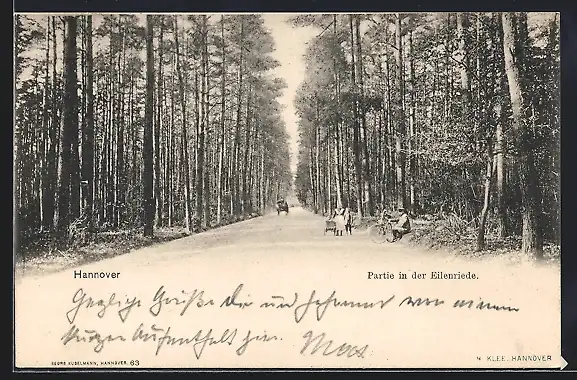 Hannover
Partie in der Eilenriede.
Herzliche Grüße Dir und Johanna von einem
kurzen Aufenthalt hier. Moos
GEORG KUGELMANN, HANNOVER. 63
KLEE, HANNOVER